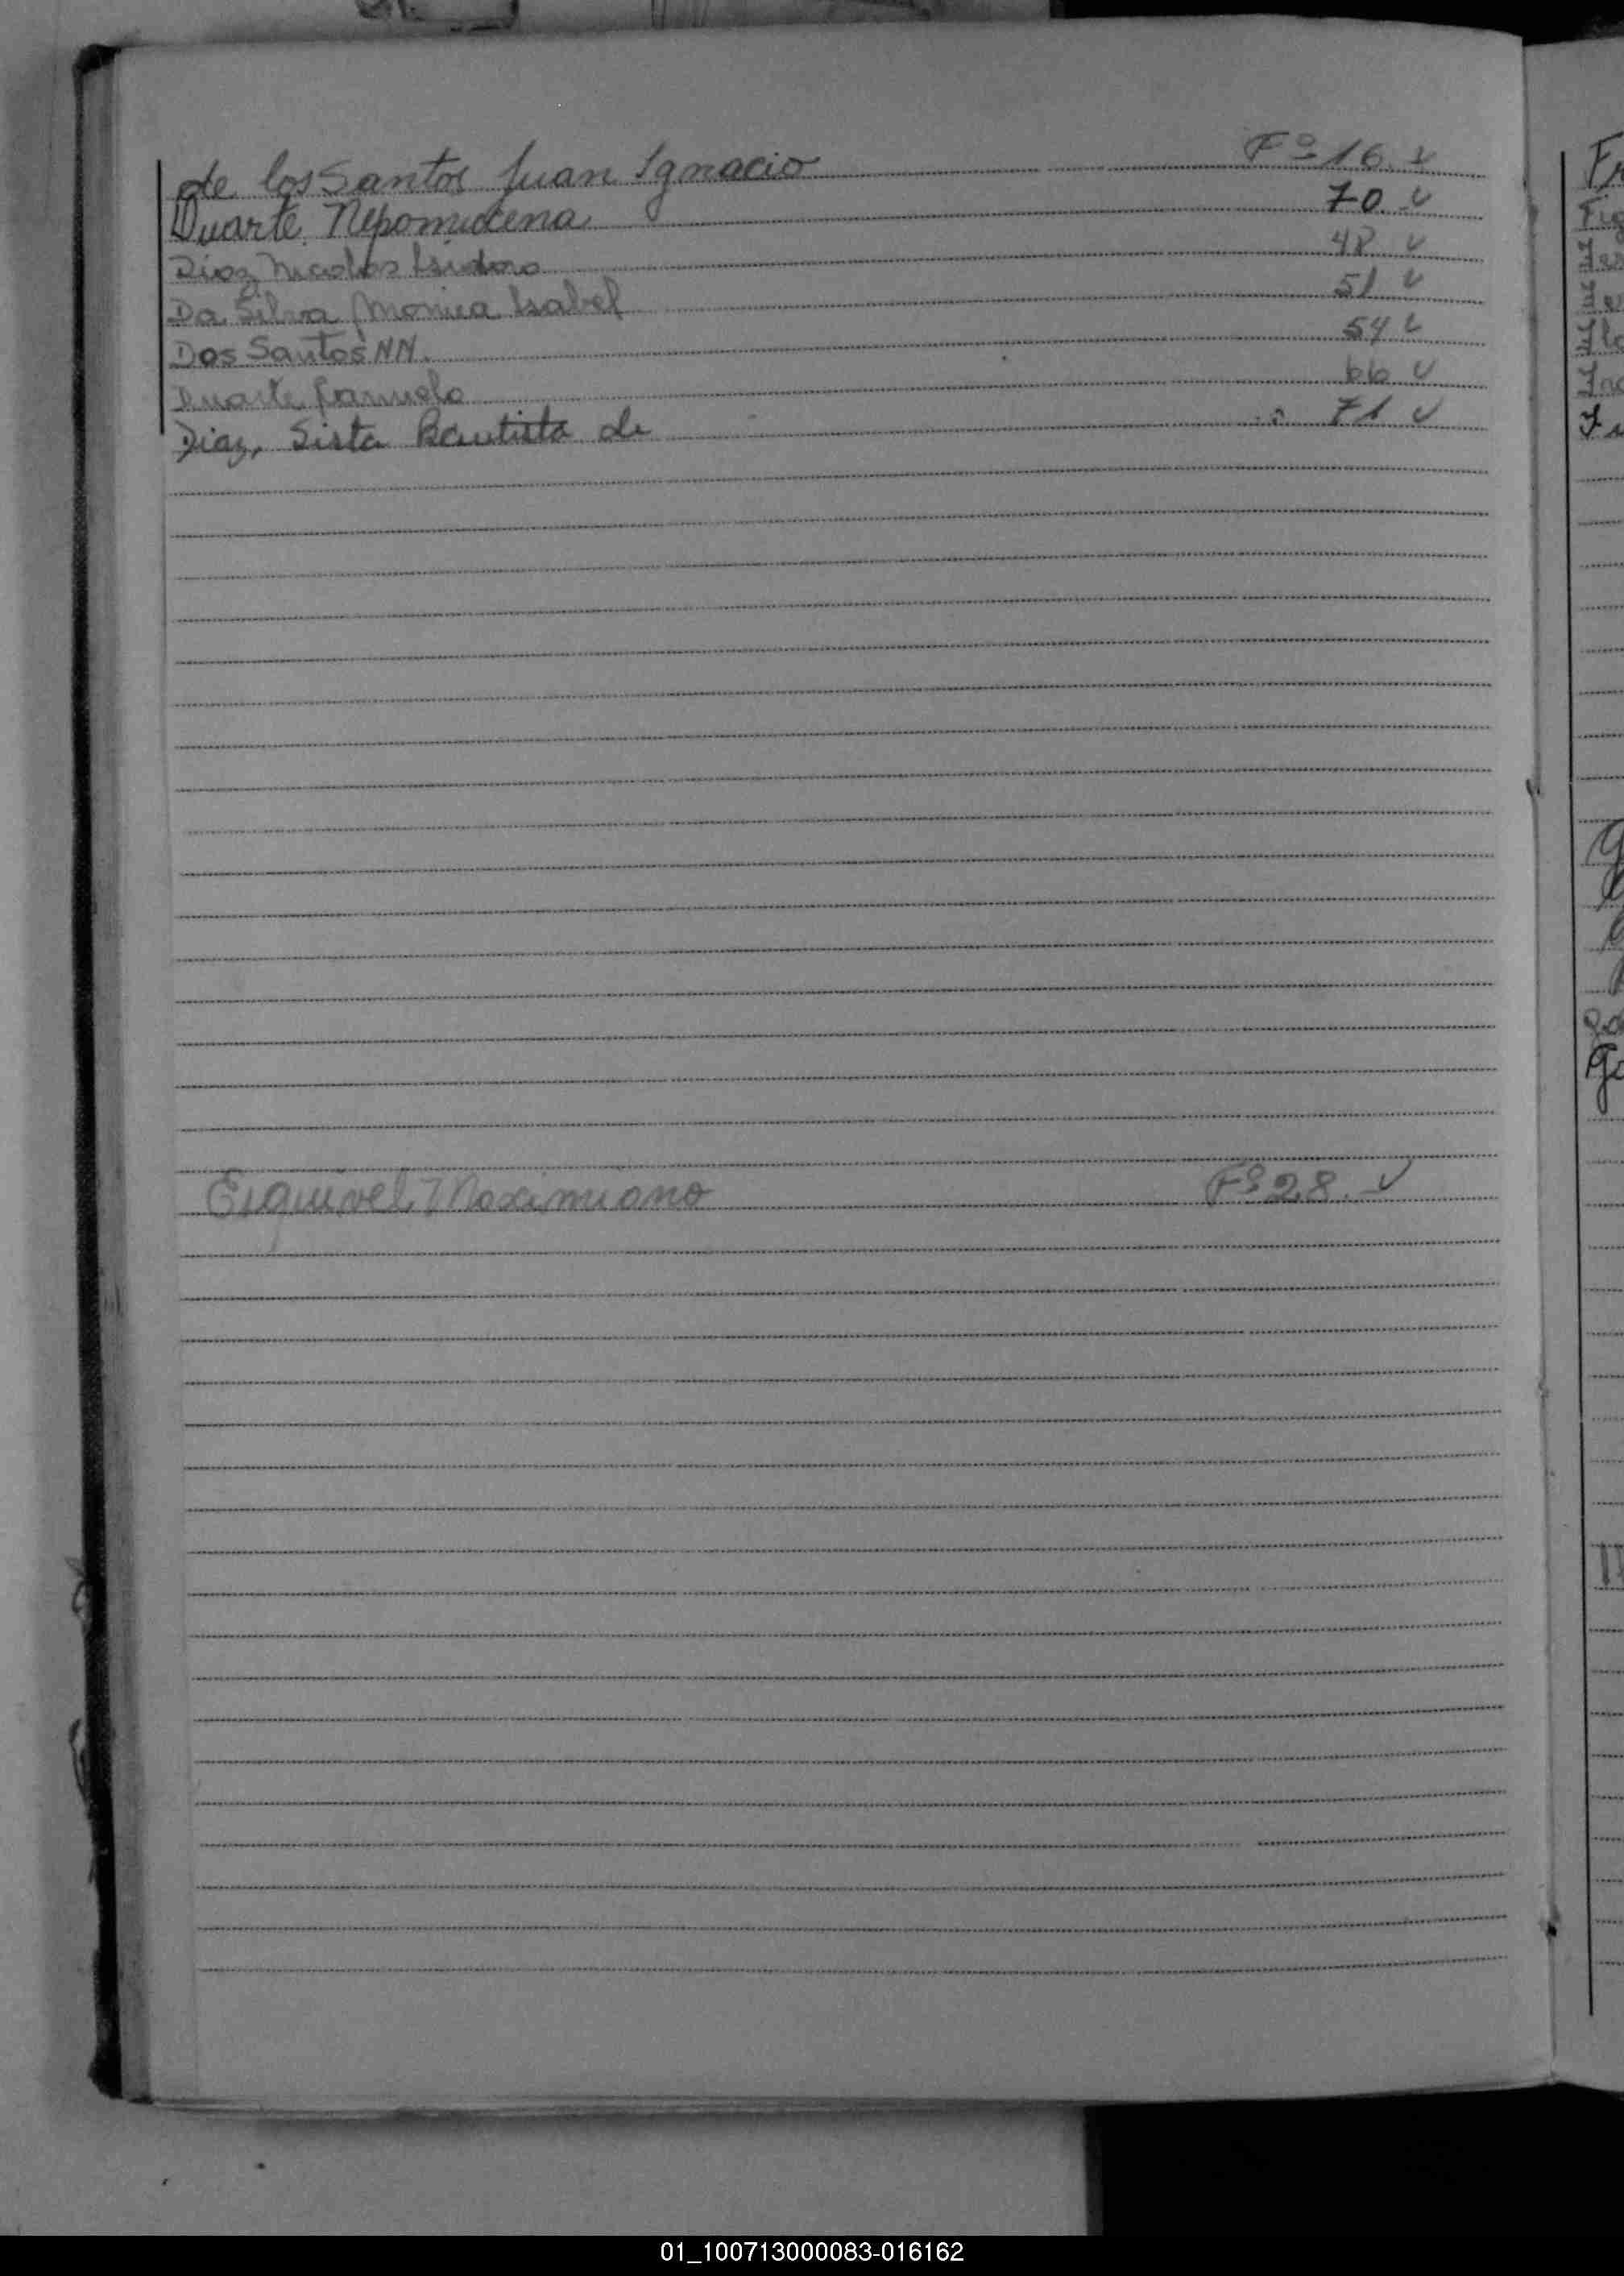 de los Santos Juan Ignacio Fº 16. ✓
Duarte Nepomucena 70 ✓
Diaz Nicolas Isidoro 48 ✓
Da Silva Monica Isabel 51 ✓
Dos Santos NN. 54 ✓
Duarte 66 ✓
Diaz, Sista Bautista de 71 ✓
Esquivel Maximiano Fº 28. ✓
01_100713000083-016162